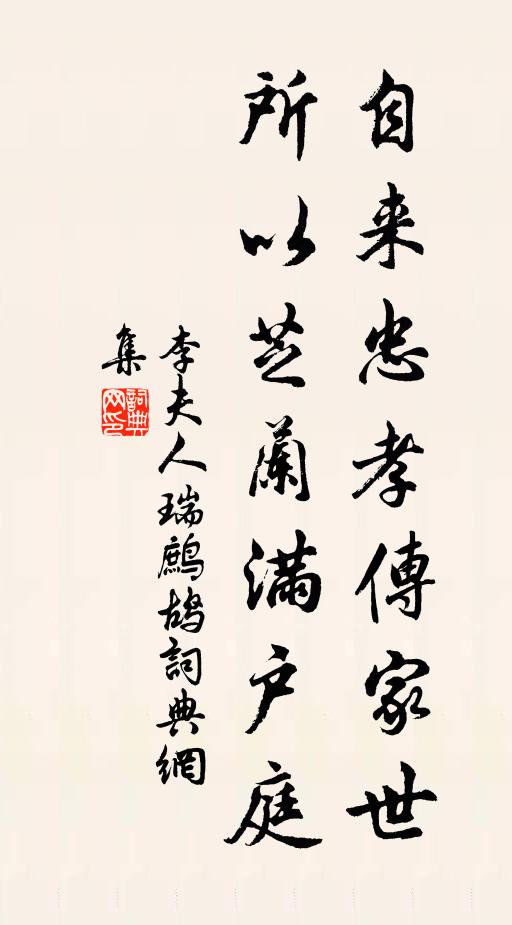 自来忠孝傳家世
所以芝蘭满户庭
李夫人瑞鹧鸪詞典網
集
詞典网印